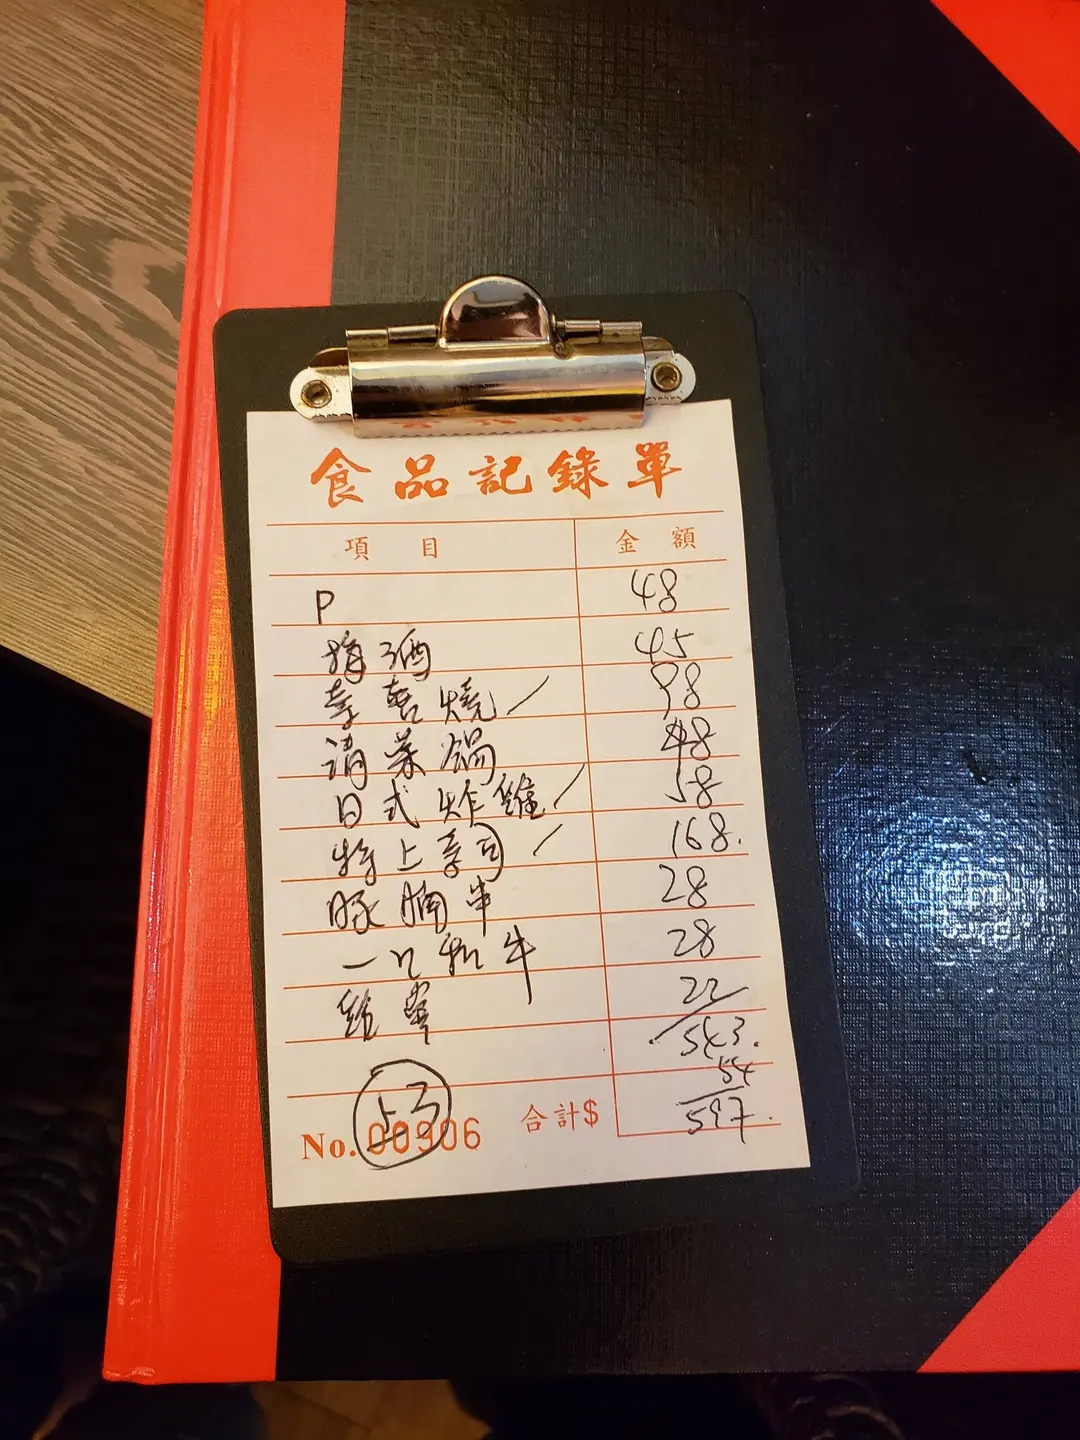 食品記錄單
項目 金額
P 48
梅酒 45
壽喜燒 98
清菜鍋 48
日式炸雞 58
特上壽司 168.
豚腩串 28
一口和牛 28
22
543.
54
No. 00906 合計$ 597.